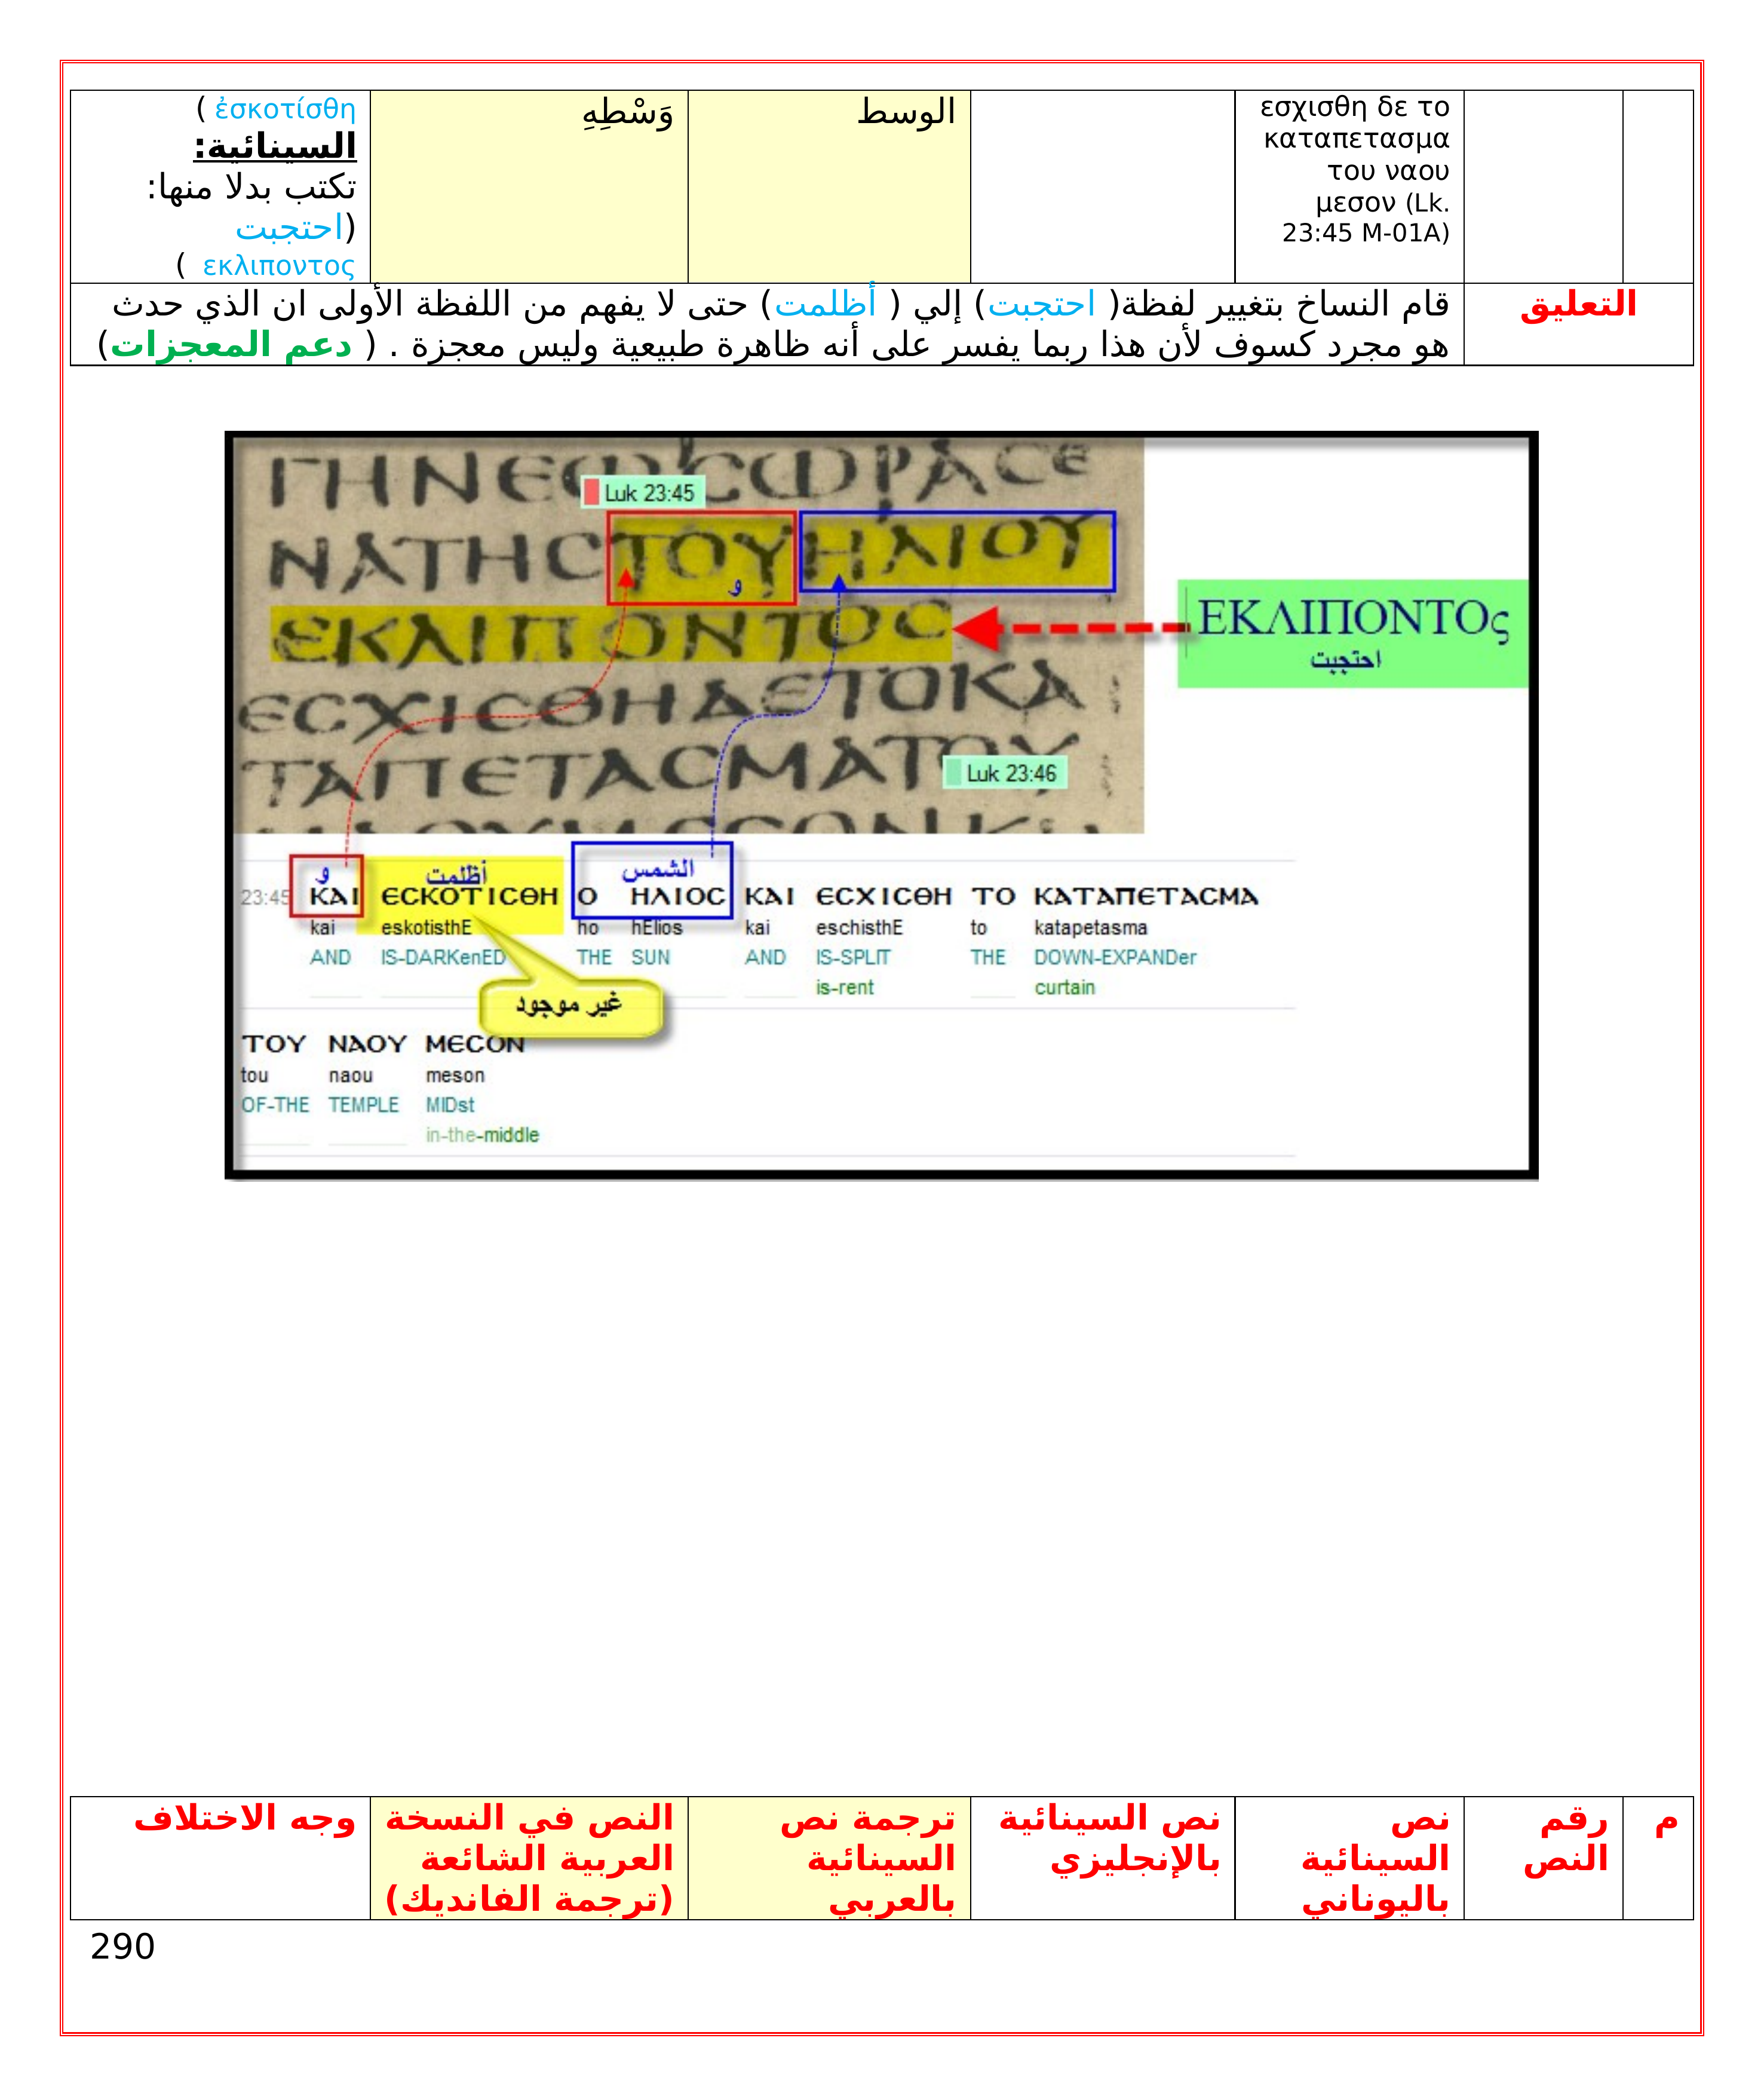 εσχισθη δε το
καταπετασμα
του ναου
μεσον (Lk.
23:45 M-01A)
الوسط
وَسْطِهِ
ἐσκοτίσθη )
السينائية:
تكتب بدلا منها:
(احتجبت
εκλιποντος )
التعليق
قام النساخ بتغيير لفظة( احتجبت) إلي ( أظلمت) حتى لا يفهم من اللفظة الأولى ان الذي حدث
هو مجرد كسوف لأن هذا ربما يفسر على أنه ظاهرة طبيعية وليس معجزة . ( دعم المعجزات)
Luk 23:45
ΝΑΤΗCΤΟΥΗΛΙΟΥ
و
ΕΚΛΙΠΟΝΤΟC
ΕΚΛΙΠΟΝΤΟς
احتجبت
ΕCΧΙCΘΗΔΕΤΟΚΑ
ΤΑΠΕΤΑCΜΑΤΟΥ
Luk 23:46
و أظلمت الشمس
23:45 ΚΑΙ ЄCΚΟΤΙCΘΗ Ο ΗΛΙΟC ΚΑΙ ЄCΧΙCΘΗ ΤΟ ΚΑΤΑΠЄΤΑCΜΑ
kai eskotisthE ho hElios kai eschisthE to katapetasma
AND IS-DARKenED THE SUN AND IS-SPLIT THE DOWN-EXPANDer
is-rent curtain
غير موجود
ΤΟΥ ΝΑΟΥ ΜЄCΟΝ
tou naou meson
OF-THE TEMPLE MIDst
in-the-middle
م
رقم
النص
نص
السينائية
باليوناني
نص السينائية
بالإنجليزي
ترجمة نص
السينائية
بالعربي
النص في النسخة
العربية الشائعة
(ترجمة الفانديك)
وجه الاختلاف
290